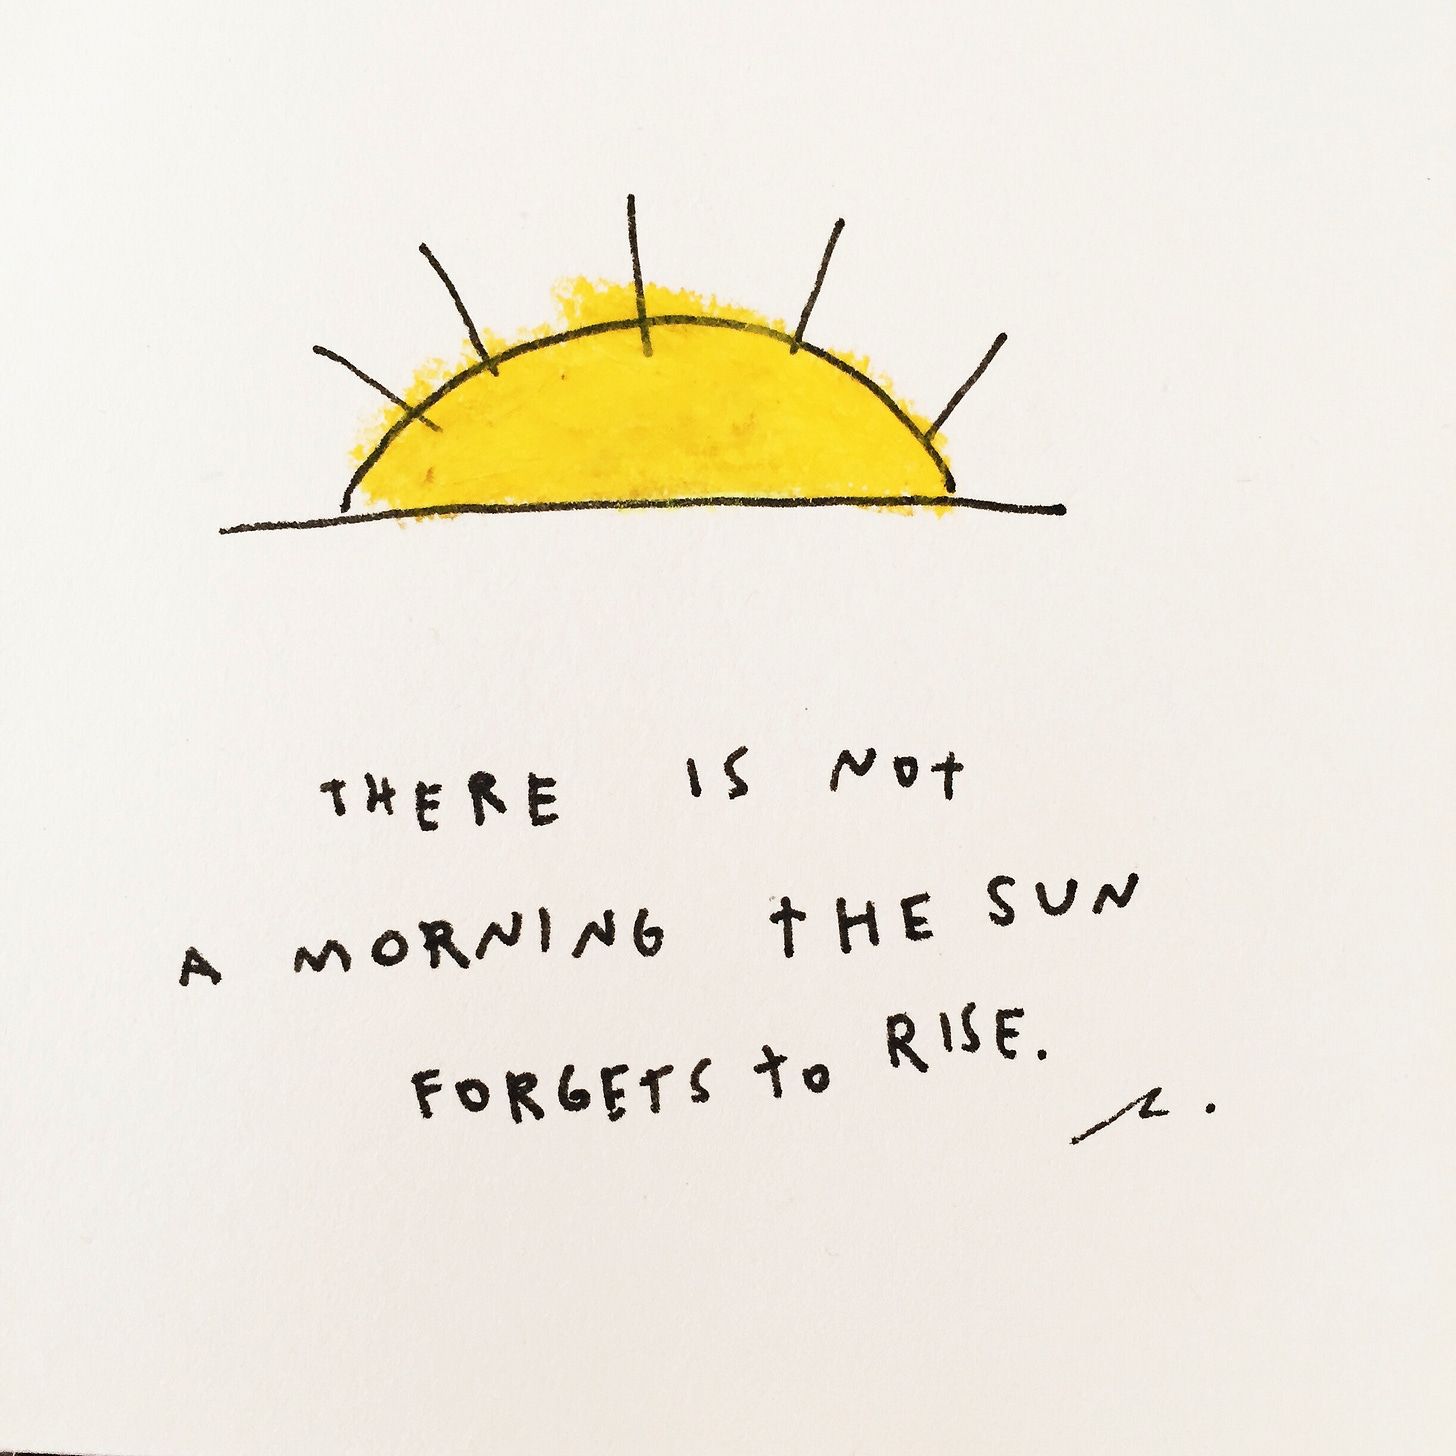 THERE IS NOT
A MORNING THE SUN
FORGETS TO RISE.